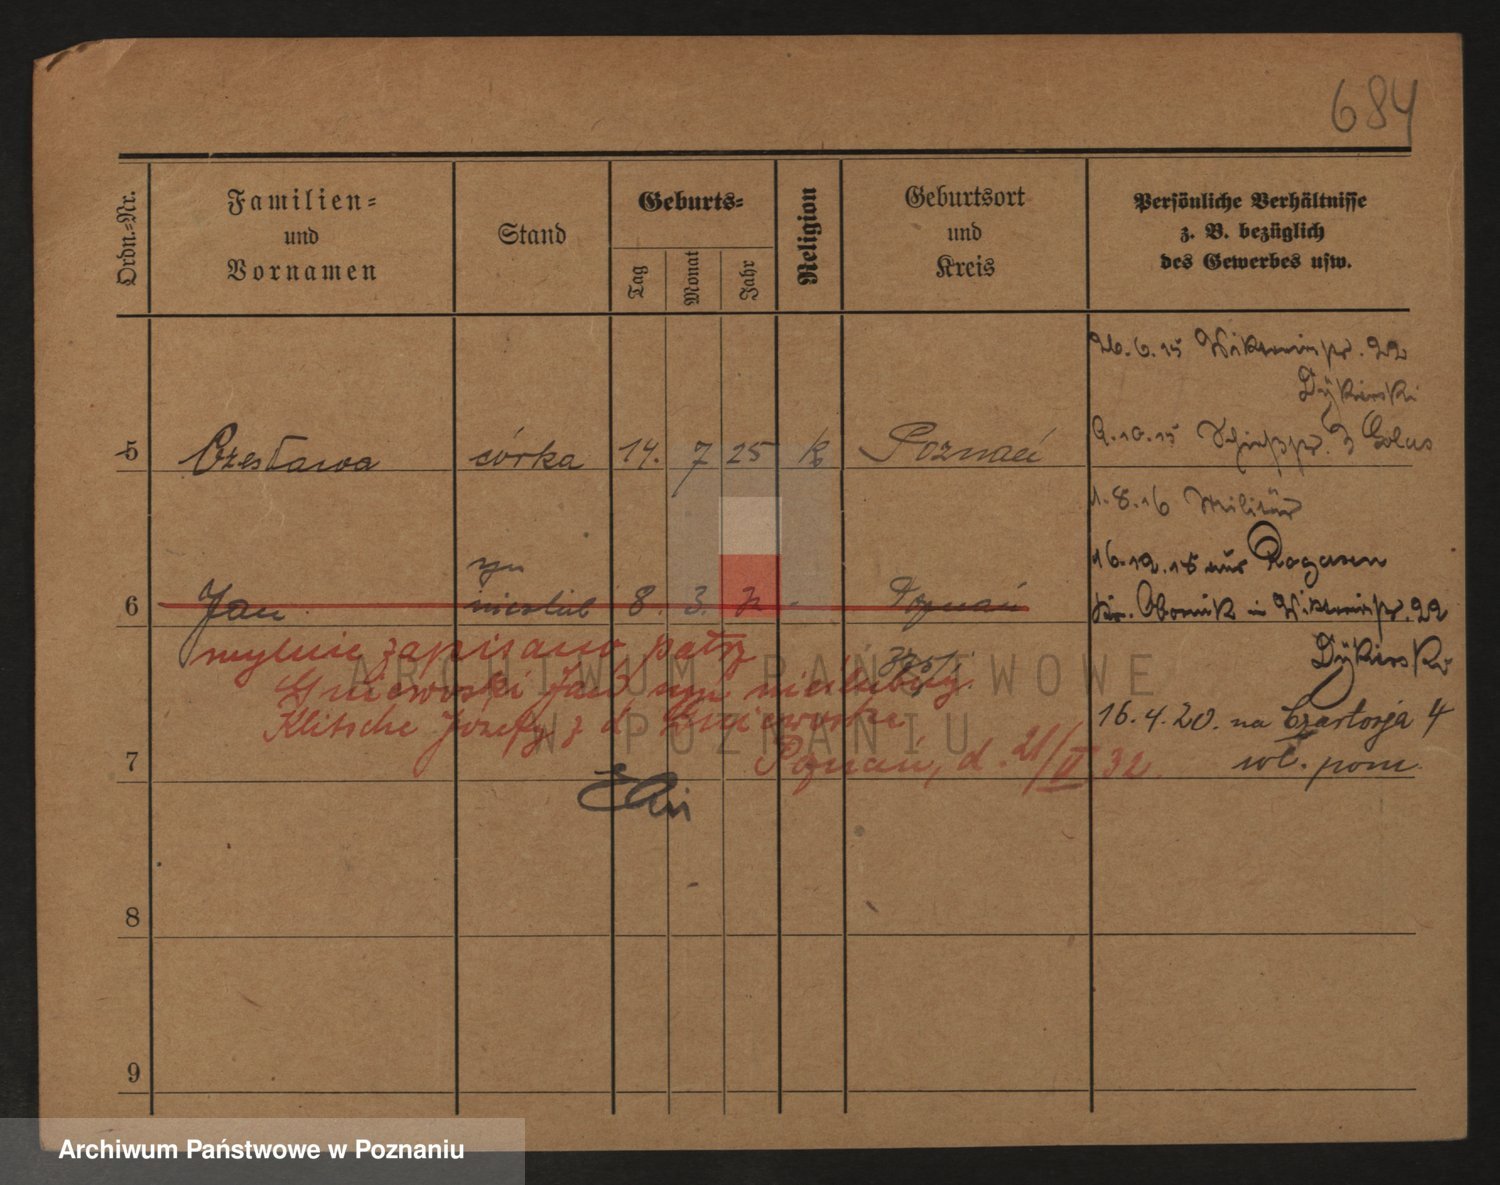 684
Ordn.-Nr.
Familien-
und
Vornamen
Stand
Geburts-
Tag
Monat
Jahr
Religion
Geburtsort
und
Kreis
Persönliche Verhältnisse
z. B. bezüglich
des Gewerbes usw.
26.6.15 Wiktoriastr. 22
Dÿkierski
5 Czesława córka 14. 7 25 k Poznań
9.10.15
1.8.16 Militär
16.12.18 aus Rogasen
Kr. Obornik in Wiktoriastr. 22
Dÿkierski
syn
6 Jan nieślub 8. 3. Poznań
mylnie zapisano patrz
Gniewoski Jan syn nieślubny
Klitsche Józefy z d. Gniewoska
16.4.20. na Czartorja 4
7 Poznań, d. 21/II 32. wł. pom.
8
9
ARCHIWUM PAŃSTWOWE
W POZNANIU
Archiwum Państwowe w Poznaniu